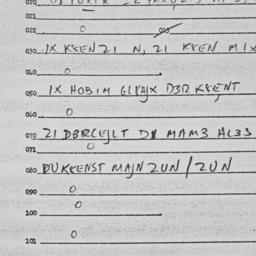 021
022 0
030 IX KEEN 21 N, 21 KEEN MIX
040 0
050 IX HOBIM GLEAJX D3R KEENT
060 0
070 21 D3RCEJLT D1 MAM3 AL3S
071 0
080 DUKKENST MAJN 2UN / 2UN
090 0
0
100
0
101